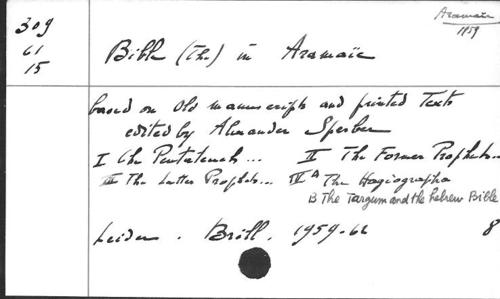 Aramaic
1959
309
61
15
Bible (The) in Aramaïc
based on old manuscripts and printed Texts
edited by Alexander Sperber
I The Pentateuch... II The Former Prophets...
III The Latter Prophets... IV A The Hagiographa
B The Targum and the Hebrew Bible
Leiden. Brill. 1959-62 8